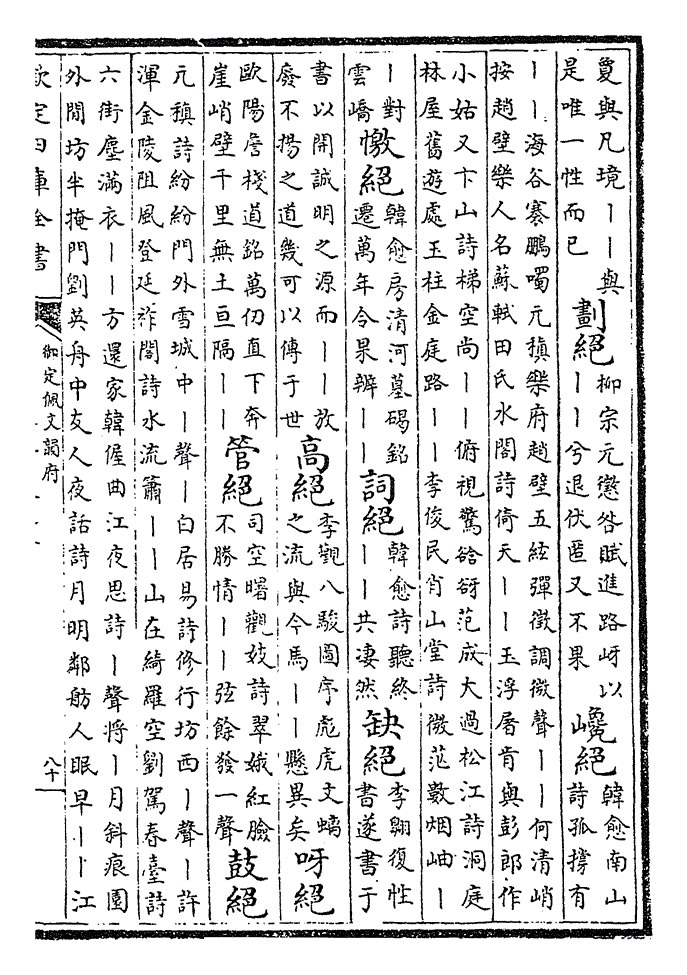 敻與凡境｜｜與
是唯一性而已
劃絕
柳宗元懲咎賦進路呀以
｜｜兮退伏匿又不果
巉絕
韓愈南山
詩孤撐有
｜｜海谷褰鵬噣元稹樂府趙璧五絃彈徵調微聲｜｜何清峭
按趙璧樂人名蘇軾田氏水閣詩倚天｜｜玉浮屠肯與彭郎作
小姑又卞山詩梯空尚｜｜俯視驚谽谺范成大過松江詩洞庭
林屋舊遊處玉柱金庭路｜｜李俊民肖山堂詩微茫數烟岫｜
｜對
雲嶠
憿絕
韓愈房清河墓碣銘
遷萬年令果辨｜｜
詞絕
韓愈詩聽終
｜｜共凄然
缺絕
李翺復性
書遂書于
書以開誠明之源而｜｜放
廢不揚之道幾可以傳于世
高絕
李觀八駿圖序彪虎文螭
之流與今馬｜｜懸異矣
呀絕
歐陽詹棧道銘萬仞直下奔
崖峭壁千里無土亘隔｜｜
管絕
司空曙觀妓詩翠娥紅臉
不勝情｜｜弦餘發一聲
鼓絕
元稹詩紛紛門外雪城中｜聲｜白居易詩修行坊西｜聲｜許
渾金陵阻風登延祚閣詩水流簫｜｜山在綺羅空劉駕春臺詩
六街塵滿衣｜｜方還家韓偓曲江夜思詩｜聲將｜月斜痕園
外閒坊半掩門劉英舟中友人夜話詩月明鄰舫人眠早｜｜江
欽定四庫全書
御定佩文韻府
八十